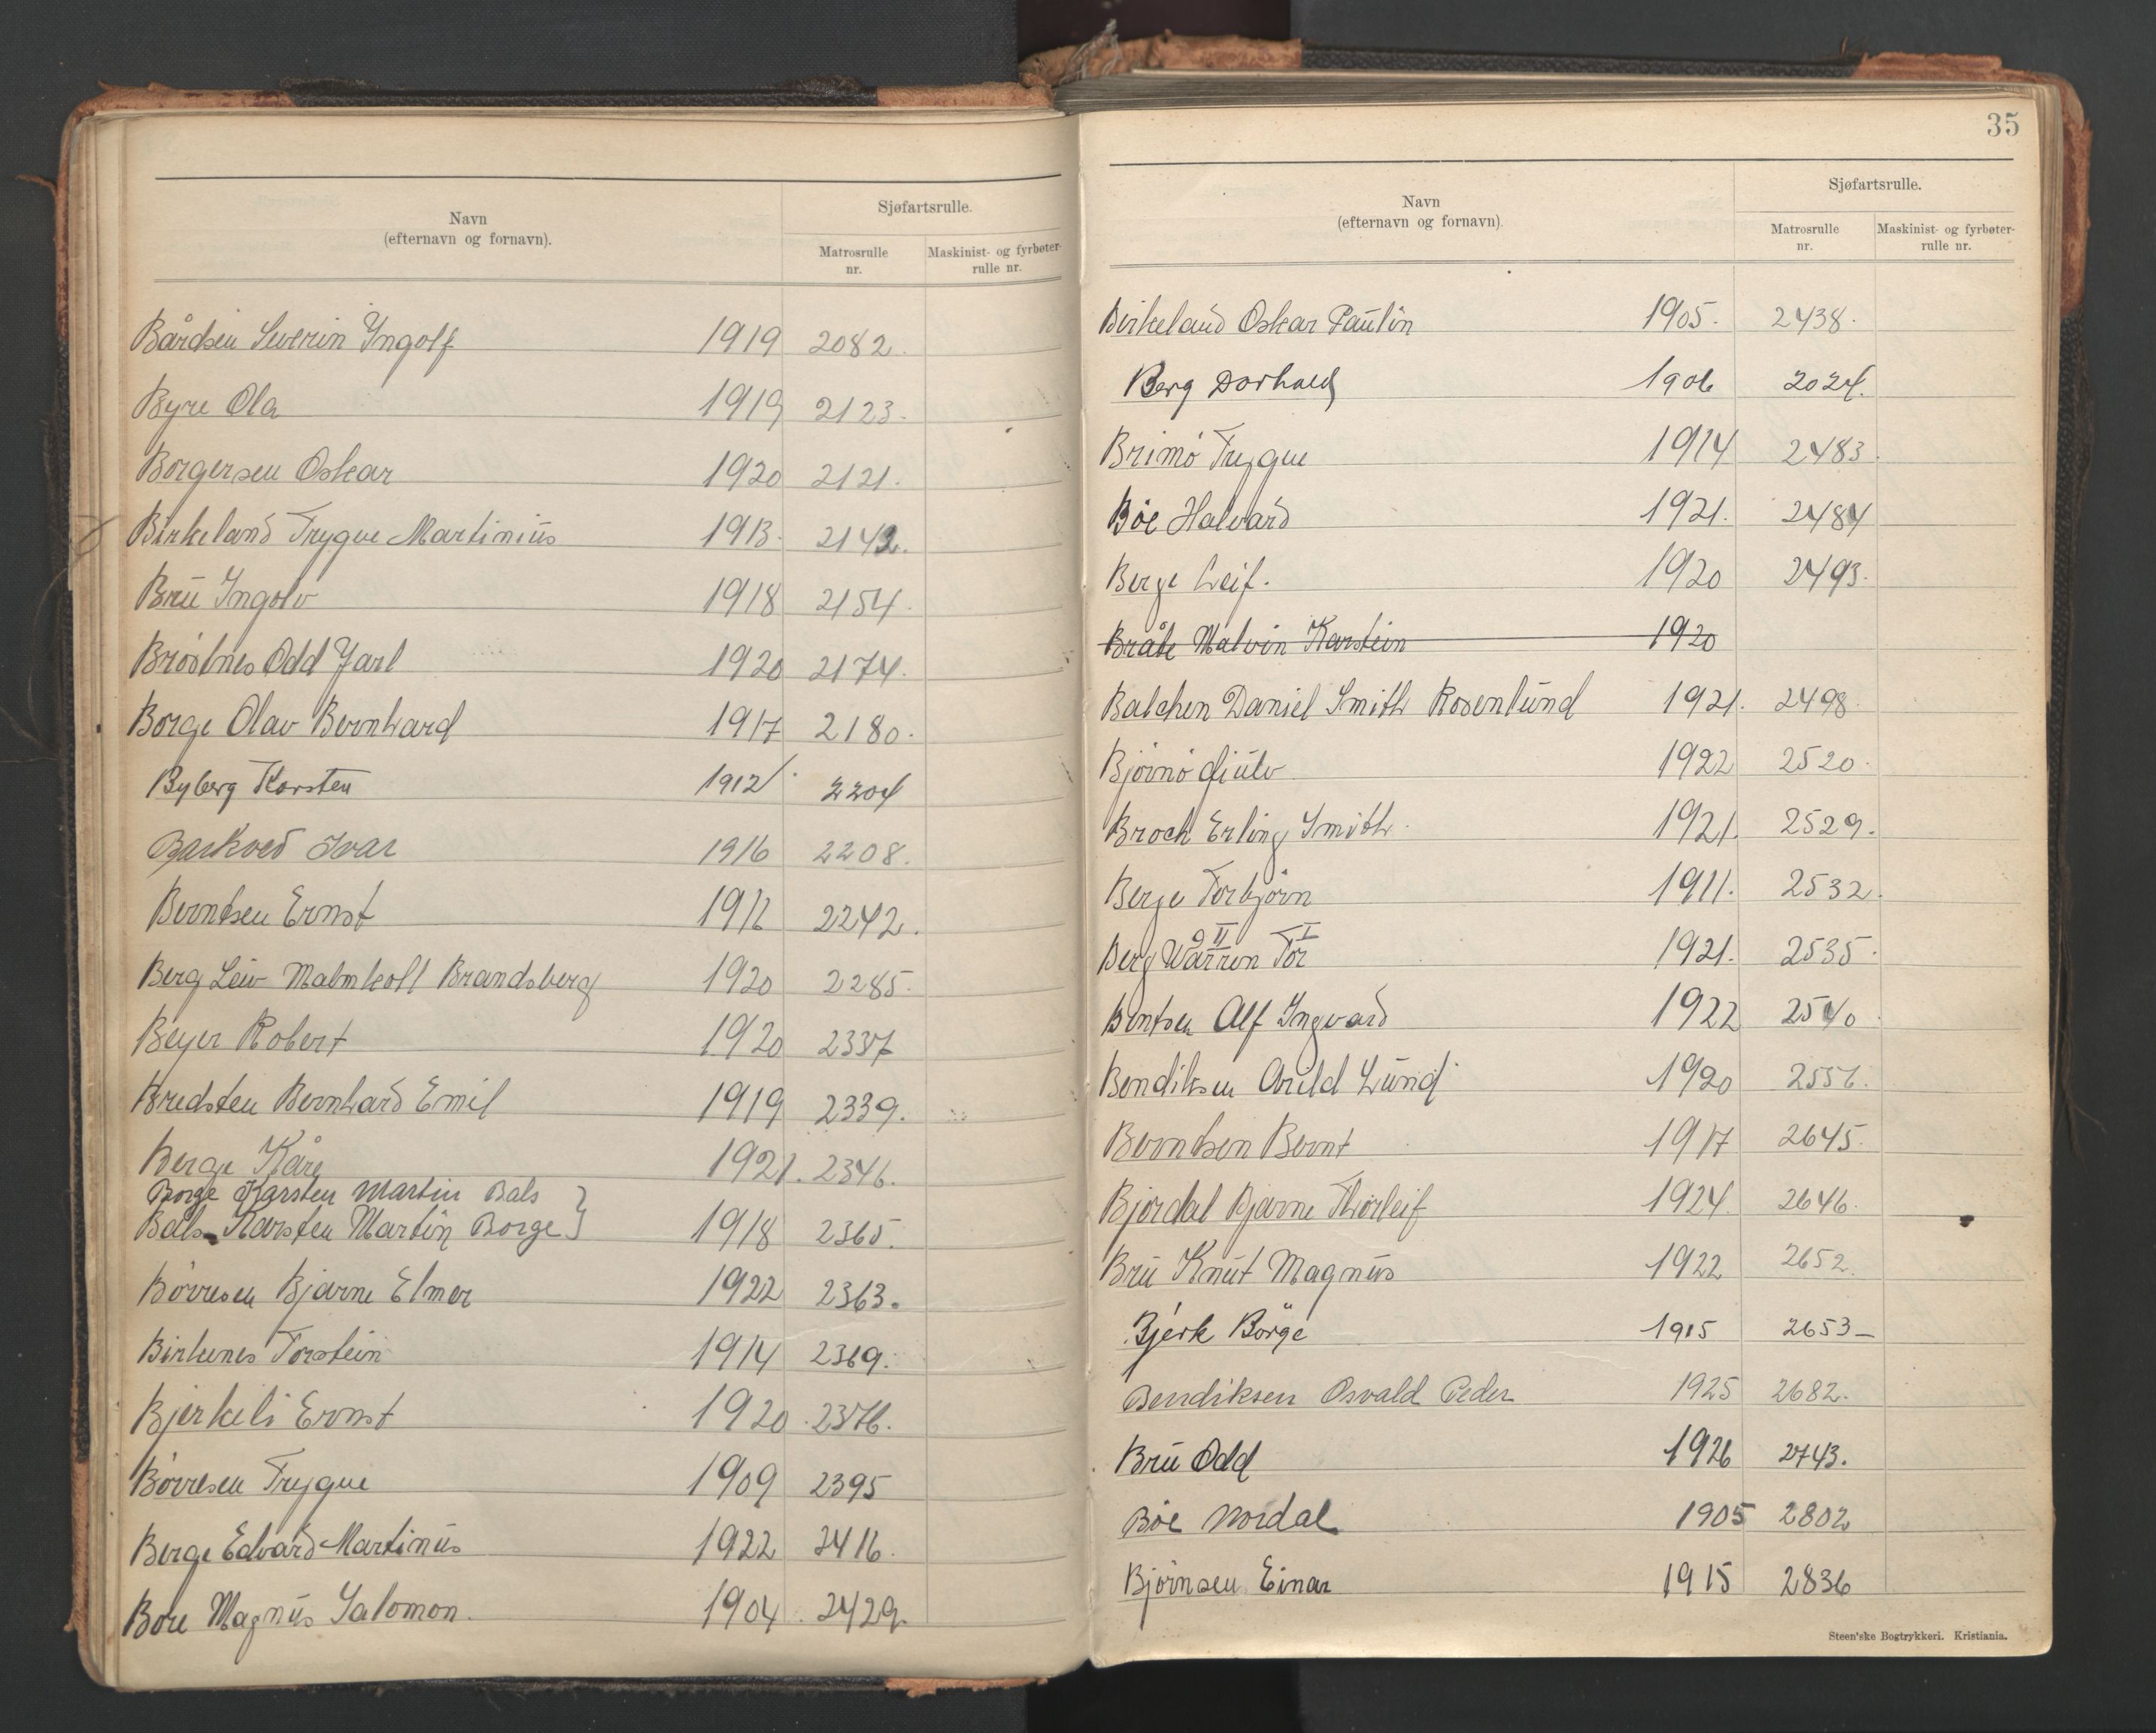 Navn
(efternavn og fornavn).
Sjøfartsrulle.
Matrosrulle
nr.
Maskinist- og fyrbøter-
rulle nr.
Bårdsen Severin Ingolf 1919 2082.
Byre Ola 1919 2123.
Borgersen Oskar 1920 2121.
Birkeland Trygve Martinius 1913. 2142.
Brū Ingolv 1918 2154.
Bröstnes Odd Jarl 1920 2174.
Borge Olav Bernhard 1917 2180.
Byberg Karsten 1912 2204
Barkved Ivar 1916 2208.
Berntsen Ernst 1916 2242.
Berg Leiv Malmkoll Brandsberg 1920 2285.
Beyer Robert 1920 2337
Bredsten Bernhard Emil 1919 2339.
Berge Kåre 1921. 2346.
Borge Karsten Martin Bals }
Bals Karsten Martin Borge } 1918 2365.
Börresen Bjarne Elmer 1922 2363.
Birkenes Torstein 1914 2369.
Bjerkeli Ernst 1920. 2376.
Börresen Trygve 1909 2395
Berge Edvard Martinūs 1922 2416.
Bore Magnūs Salomon. 1904. 2429.
35
Navn
(efternavn og fornavn).
Sjøfartsrulle.
Matrosrulle
nr.
Maskinist- og fyrbøter-
rulle nr.
Birkeland Oskar Paūlin 1905. 2438.
Berg Dorhald 1906 2024.
Brimö Trygve 1914 2483.
Böe Halvard 1921. 2484
Berge Leif. 1920 2493.
Bråte Malvin Karstein 1920
Balchen Daniel Smith Rosenlūnd 1921. 2498.
Björnö Giūlv 1922 2520.
Broch Erling Smith. 1921. 2529.
Berge Torbjörn 1911. 2532.
II I
Berg Warren Tor 1921. 2535.
Bentsen Alf Ingvard 1922 2540.
Bendiksen Arild Lūnd 1920 2556.
Berntsen Bernt 1917 2645.
Bjordal Bjarne Thorleif 1924. 2646.
Brū Knūt Magnūs 1922 2652.
Bjerk Börge 1915 2653-
Bendiksen Osvald Peder 1925 2682.
Brū Odd 1926 2743.
Böe Nordal 1905 2802
Björnsen Einar 1915 2836
Steen'ske Bogtrykkeri. Kristiania.